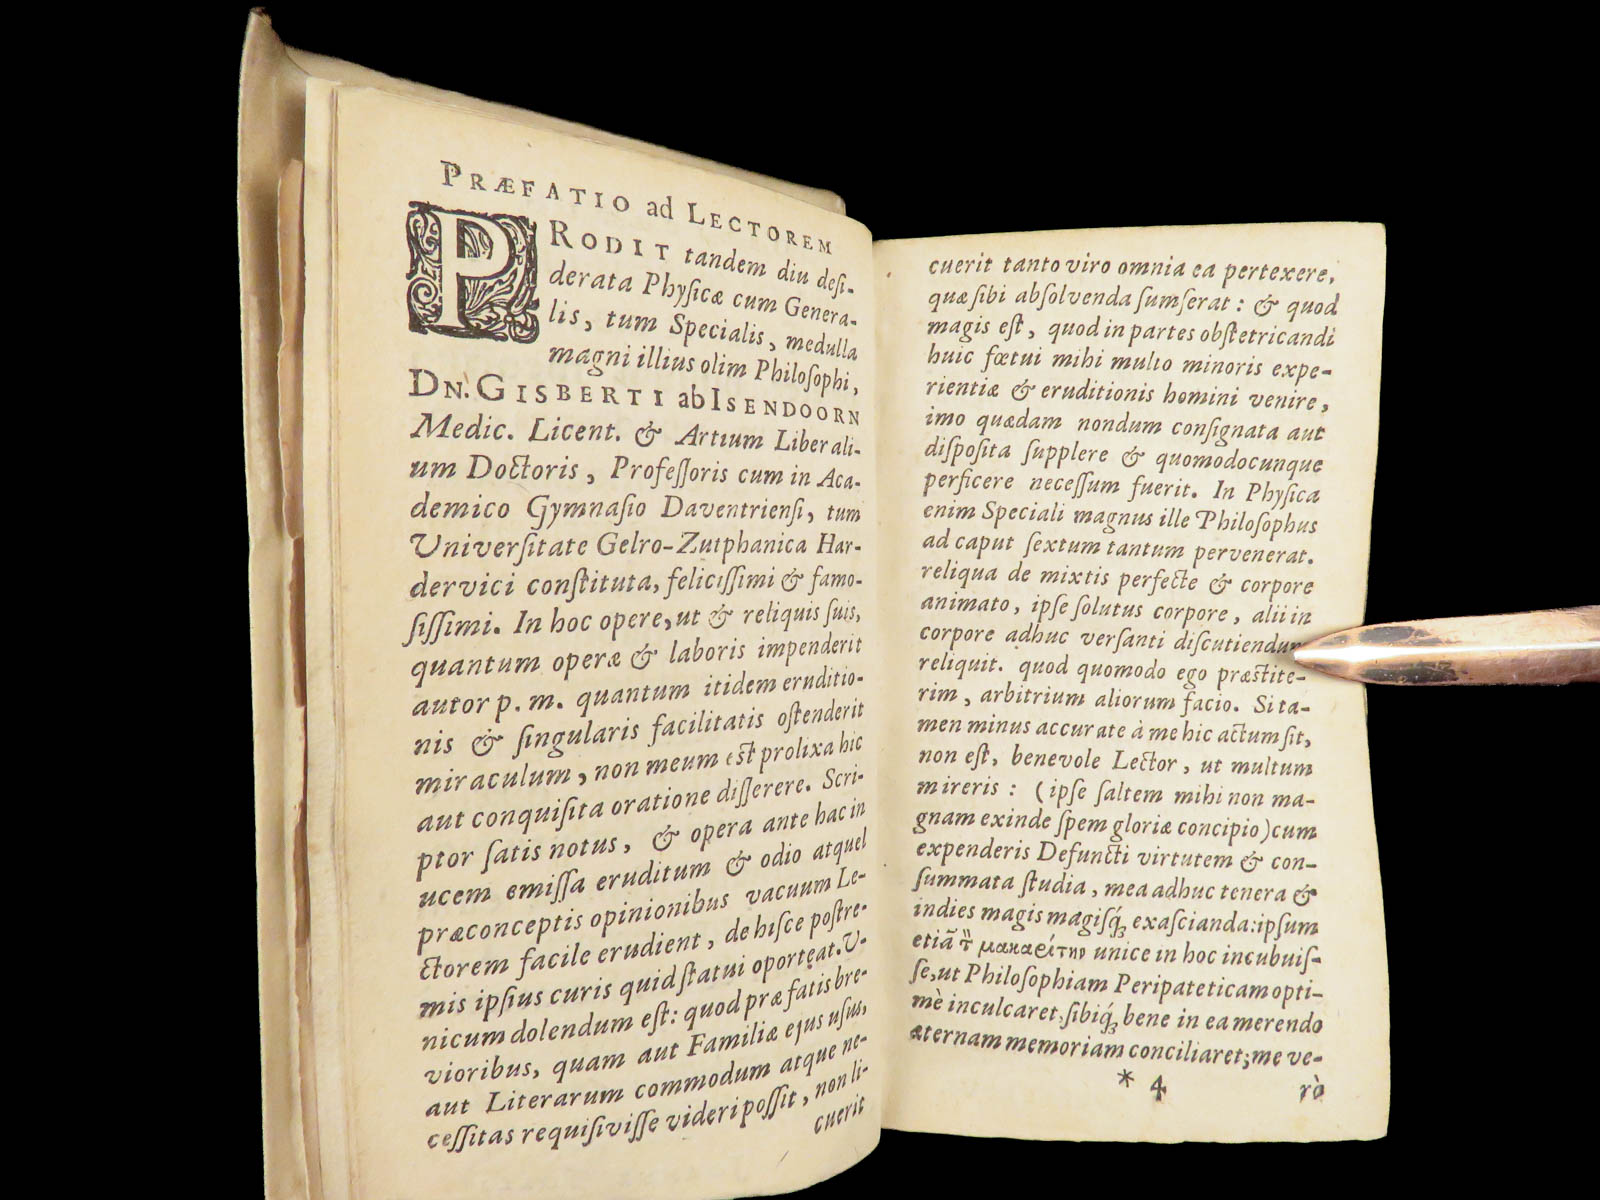 PRÆFATIO ad LECTOREM
PRODIT tandem diu deſi-
derata Phyſicæ cum Genera-
lis, tum Specialis, medulla
magni illius olim Philoſophi,
DN. GISBERTI ab ISENDOORN
Medic. Licent. & Artium Liberali-
um Doctoris, Profeſſoris cum in Aca-
demico Gymnaſio Daventrienſi, tum
Univerſitate Gelro-Zutphanica Har-
dervici conſtituta, feliciſſimi & famo-
ſiſſimi. In hoc opere, ut & reliquis ſuis,
quantum operæ & laboris impenderit
autor p. m. quantum itidem eruditio-
nis & ſingularis facilitatis oſtenderit
miraculum, non meum eſt prolixa hic
aut conquiſita oratione diſſerere. Scri-
ptor ſatis notus, & opera ante hac in
ucem emiſſa eruditum & odio atquel
præconceptis opinionibus vacuum Le-
ctorem facile erudient, de hiſce poſtre-
mis ipſius curis quid ſtatui oporteat. U-
nicum dolendum eſt: quod præ fatis bre-
vioribus, quam aut Familiæ ejus uſus,
aut Literarum commodum atque ne-
ceſſitas requiſiviſſe videri poſſit, non li-
cuerit
cuerit tanto viro omnia ea pertexere,
quæ ſibi abſolvenda ſumſerat: & quod
magis eſt, quod in partes obſtetricandi
huic fœtui mihi multo minoris expe-
rientiæ & eruditionis homini venire,
imo quædam nondum conſignata aut
diſpoſita ſupplere & quomodocunque
perficere neceſſum fuerit. In Phyſica
enim Speciali magnus ille Philoſophus
ad caput ſextum tantum pervenerat.
reliqua de mixtis perfecte & corpore
animato, ipſe ſolutus corpore, alii in
corpore adhuc verſanti diſcutiendum
reliquit. quod quomodo ego præſtite-
rim, arbitrium aliorum facio. Si ta-
men minus accurate à me hic actum ſit,
non eſt, benevole Lector, ut multum
mireris: (ipſe ſaltem mihi non ma-
gnam exinde ſpem gloriæ concipio) cum
expenderis Defuncti virtutem & con-
ſummata ſtudia, mea adhuc tenera &
indies magis magiſq́; exaſcianda: ipſum
etiã τ̀ μακαρίτην unice in hoc incubuiſ-
ſe, ut Philoſophiam Peripateticam opti-
mè inculcaret, ſibiq́; bene in ea merendo
æternam memoriam conciliaret; me ve-
* 4 rò